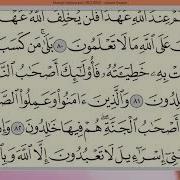 ـمْ عِندَ ٱللَّهِ عَهْدًا فَلَن يُخْلِفَ ٱللَّهُ عَهْـ
عَلَى ٱللَّهِ مَا لَا تَعْلَمُونَ ٨٠ بَلَىٰ مَن كَسَبَ
ـتْ بِهِۦ خَطِيٓـَٔتُهُۥ فَأُو۟لَٰٓئِكَ أَصْحَٰبُ ٱلنَّـ
ـلِدُونَ ٨١ وَٱلَّذِينَ ءَامَنُوا۟ وَعَمِلُوا۟ ٱلصَّـ
أَصْحَٰبُ ٱلْجَنَّةِ هُمْ فِيهَا خَٰلِدُونَ ٨٢
ـنِىٓ إِسْرَٰٓءِيلَ لَا تَعْبُدُونَ إِلَّا ٱللَّهَ وَبِٱلْـ